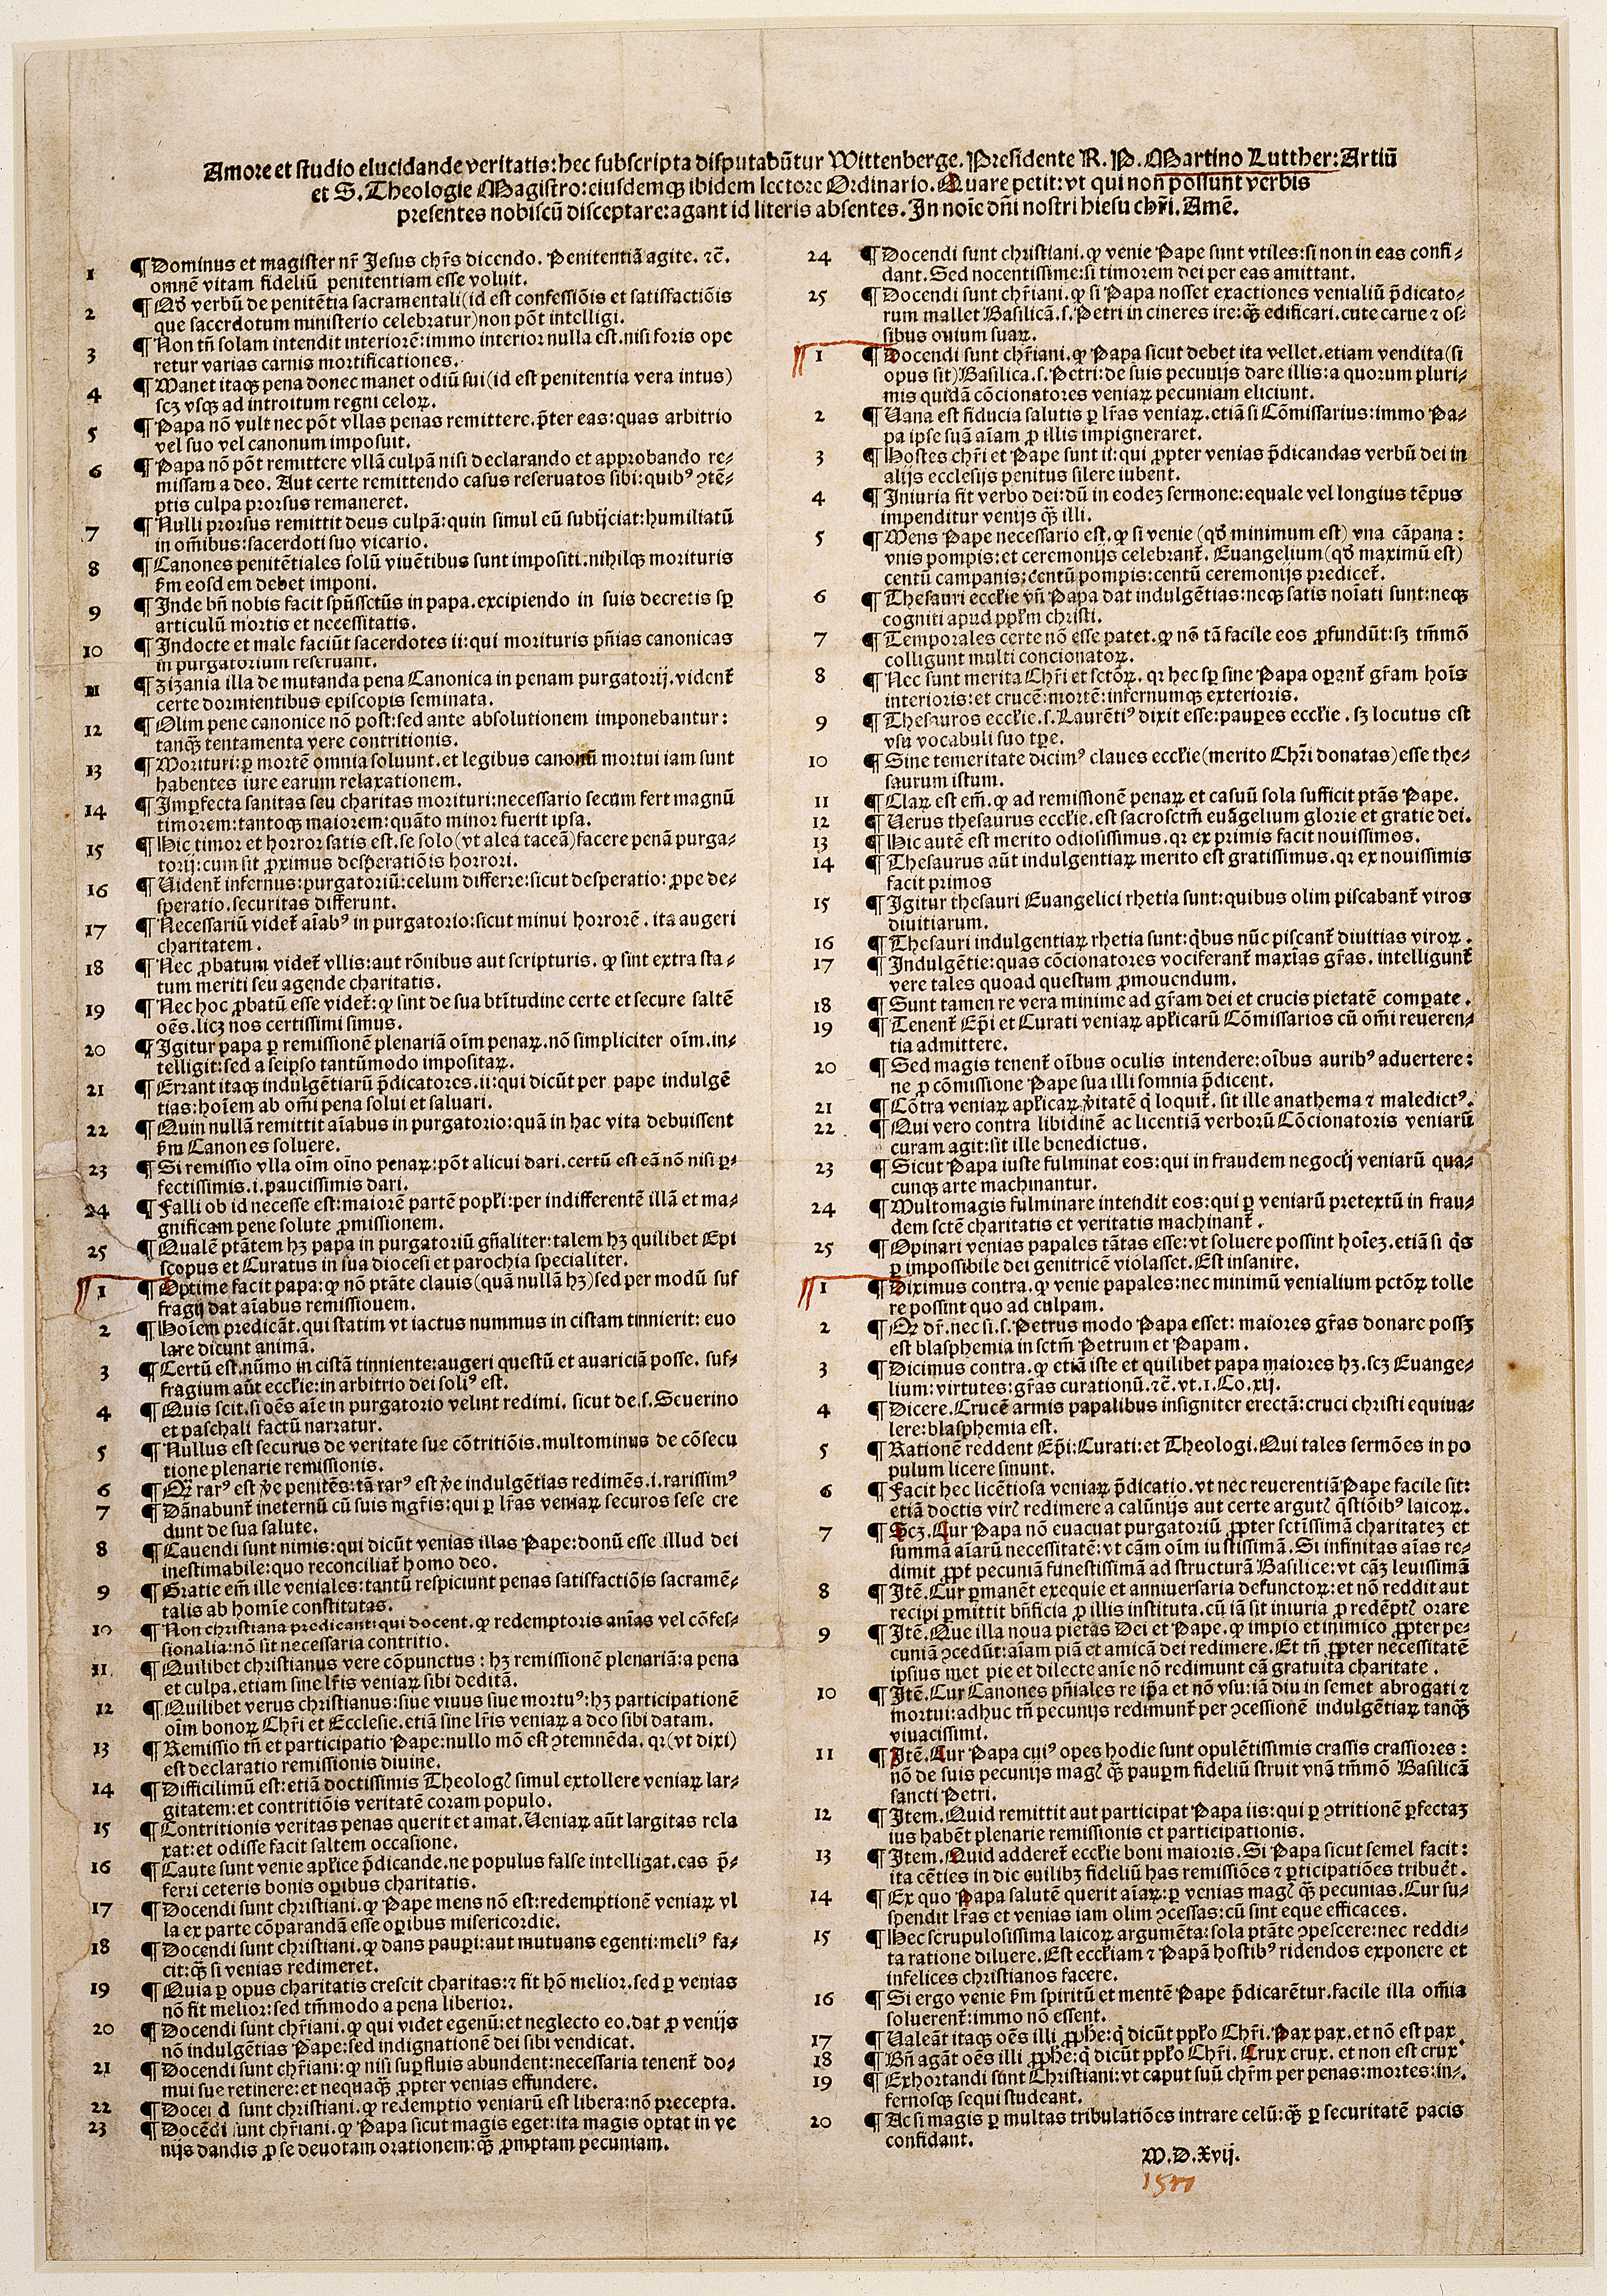 Amore et studio elucidande veritatis: hec subscripta disputabūtur Wittenberge. Presidente R. P. Martino Lutther: Artiū
et S. Theologie Magistro: eiusdemqȝ ibidem lectore Ordinario. Quare petit: vt qui non possunt verbis
presentes nobiscū disceptare: agant id literis absentes. In noīe dn̄i nostri hiesu chr̄i. Amē.
1 ¶ Dominus et magister nr̄ Jesus chr̄s dicendo. Penitentiā agite. ⁊c̄.
omnē vitam fideliū penitentiam esse voluit.
2 ¶ Qd̄ verbū de penitētia sacramentali (id est confessiōis et satisfactiōis
que sacerdotum ministerio celebratur) non pōt intelligi.
3 ¶ Non tn̄ solam intendit interiorē: immo interior nulla est. nisi foris ope
retur varias carnis mortificationes.
4 ¶ Manet itaqȝ pena donec manet odiū sui (id est penitentia vera intus)
scȝ vsqȝ ad introitum regni celoꝝ.
5 ¶ Papa nō vult nec pōt vllas penas remittere. p̄ter eas: quas arbitrio
vel suo vel canonum imposuit.
6 ¶ Papa nō pōt remittere vllā culpā nisi declarando et approbando re-
missam a deo. Aut certe remittendo casus reseruatos sibi: quibꝰ ꝯtē-
ptis culpa prorsus remaneret.
7 ¶ Nulli prorsus remittit deus culpā: quin simul eū subijciat: humiliatū
in om̄ibus: sacerdoti suo vicario.
8 ¶ Canones penitētiales solū viuētibus sunt impositi. nihilqȝ morituris
ẜm eosdem debet imponi.
9 ¶ Inde bn̄ nobis facit spūssctūs in papa. excipiendo in suis decretis sp̱
articulū mortis et necessitatis.
10 ¶ Indocte et male faciūt sacerdotes ii: qui morituris pn̄ias canonicas
in purgatorium reseruant.
11 ¶ Zizania illa de mutanda pena Canonica in penam purgatorij. vident᷑
certe dormientibus episcopis seminata.
12 ¶ Olim pene canonice nō post: sed ante absolutionem imponebantur:
tanqȝ̄ tentamenta vere contritionis.
13 ¶ Morituri: ꝑ mortē omnia soluunt. et legibus canonū mortui iam sunt
habentes iure earum relaxationem.
14 ¶ Imꝑfecta sanitas seu charitas morituri: necessario secum fert magnū
timorem: tantoqȝ maiorem: quāto minor fuerit ipsa.
15 ¶ Hic timor et horror satis est. se solo (vt alea taceā) facere penā purga-
torij: cum sit ꝓximus desperatiōis horrori.
16 ¶ Vident᷑ infernus: purgatoriū: celum differre: sicut desperatio: ꝓpe de-
speratio. securitas differunt.
17 ¶ Necessariū videt᷑ aīabꝰ in purgatorio: sicut minui horrorē. ita augeri
charitatem.
18 ¶ Nec ꝓbatum videt᷑ vllis: aut rōnibus aut scripturis. ꝙ sint extra sta-
tum meriti seu agende charitatis.
19 ¶ Nec hoc ꝓbatū esse videt᷑: ꝙ sint de sua btītudine certe et secure saltē
oēs. licȝ nos certissimi simus.
20 ¶ Igitur papa ꝑ remissionē plenariā oīm penaꝝ. nō simpliciter oīm. in-
telligit: sed a seipso tantūmodo impositaꝝ.
21 ¶ Errant itaqȝ indulgētiarū p̄dicatores. ii: qui dicūt per pape indulgē
tias: hoīem ab om̄i pena solui et saluari.
22 ¶ Quin nullā remittit aīabus in purgatorio: quā in hac vita debuissent
ẜm Canones soluere.
23 ¶ Si remissio vlla oīm oīno penaꝝ: pōt alicui dari. certū est eā nō nisi ꝑ-
fectissimis. i. paucissimis dari.
24 ¶ Falli ob id necesse est: maiorē partē popl̄i: per indifferentē illā et ma-
gnificam pene solute ꝓmissionem.
25 ¶ Qualē ptāṫem hȝ papa in purgatoriū gn̄aliter: talem hȝ quilibet Epi
scopus et Curatus in sua diocesi et parochia specialiter.
1 ¶ Optime facit papa: ꝙ nō ptāte clauis (quā nullā hȝ) sed per modū suf
fragij dat aīabus remissiouem.
2 ¶ Hoīem predicāt. qui statim vt iactus nummus in cistam tinnierit: euo
lare dicunt animā.
3 ¶ Certū est. nūmo in cistā tinniente: augeri questū et auariciā posse. suf-
fragium aūt eccl̄ie: in arbitrio dei soliꝰ est.
4 ¶ Quis scit. si oēs aīe in purgatorio velint redimi. sicut de. s. Seuerino
et paschali factū narratur.
5 ¶ Nullus est securus de veritate sue cōtritiōis. multominus de cōsecu
tione plenarie remissionis.
6 ¶ Qȝ rarꝰ est v̄e penitēs: tā rarꝰ est v̄e indulgētias redimēs. i. rarissimꝰ
7 ¶ Dānabunt᷑ ineternū cū suis mgr̄is: qui ꝑ lr̄as veniaꝝ securos sese cre
dunt de sua salute.
8 ¶ Cauendi sunt nimis: qui dicūt venias illas Pape: donū esse illud dei
inestimabile: quo reconciliat᷑ homo deo.
9 ¶ Gratie em̄ ille veniales: tantū respiciunt penas satisfactiōis sacramē-
talis ab homīe constitutas.
10 ¶ Non christiana predicant: qui docent. ꝙ redemptoris anīas vel cōfes-
sionalia: nō sit necessaria contritio.
11. ¶ Quilibet christianus vere cōpunctus: hȝ remissionē plenariā: a pena
et culpa. etiam sine lr̄is veniaꝝ sibi deditā.
12 ¶ Quilibet verus christianus: siue viuus siue mortuꝰ: hȝ participationē
oīm bonoꝝ Chr̄i et Ecclesie. etiā sine lr̄is veniaꝝ a deo sibi datam.
13 ¶ Remissio tn̄ et participatio Pape: nullo mō est ꝯtemnēda. qꝛ (vt dixi)
est declaratio remissionis diuine.
14 ¶ Difficilimū est: etiā doctissimis Theologꝭ simul extollere veniaꝝ lar-
gitatem: et contritiōis veritatē coram populo.
15 ¶ Contritionis veritas penas querit et amat. Veniaꝝ aūt largitas rela
xat: et odisse facit saltem occasione.
16 ¶ Caute sunt venie apl̄ice p̄dicande. ne populus false intelligat. eas p̄-
ferri ceteris bonis oꝑibus charitatis.
17 ¶ Docendi sunt christiani. ꝙ Pape mens nō est: redemptionē veniaꝝ vl
la ex parte cōparandā esse oꝑibus misericordie.
18 ¶ Docendi sunt christiani. ꝙ dans pauꝑi: aut mutuans egenti: meliꝰ fa-
cit: qȝ̄ si venias redimeret.
19 ¶ Quia ꝑ opus charitatis crescit charitas: ⁊ fit hō melior. sed ꝑ venias
nō fit melior: sed tm̄modo a pena liberior.
20 ¶ Docendi sunt chr̄iani. ꝙ qui videt egenū: et neglecto eo. dat ꝓ venijs
nō indulgētias Pape: sed indignationē dei sibi vendicat.
21 ¶ Docendi sunt chr̄iani: ꝙ nisi suꝑfluis abundent: necessaria tenent᷑ do-
mui sue retinere: et nequaqȝ̄ ꝓpter venias effundere.
22 ¶ Docendi sunt christiani. ꝙ redemptio veniarū est libera: nō precepta.
23 ¶ Docēdi sunt chr̄iani. ꝙ Papa sicut magis eget: ita magis optat in ve
nijs dandis ꝓ se deuotam orationem: qȝ̄ ꝓmptam pecuniam.
24 ¶ Docendi sunt christiani. ꝙ venie Pape sunt vtiles: si non in eas confi-
dant. Sed nocentissime: si timorem dei per eas amittant.
25 ¶ Docendi sunt chr̄iani. ꝙ si Papa nosset exactiones venialiū p̄dicato-
rum mallet Basilicā. s. Petri in cineres ire: qȝ̄ edificari. cute carne ⁊ os-
sibus ouium suaꝝ.
1 ¶ Docendi sunt chr̄iani. ꝙ Papa sicut debet ita vellet. etiam vendita (si
opus sit) Basilica. s. Petri: de suis pecunijs dare illis: a quorum pluri-
mis quidā cōcionatores veniaꝝ pecuniam eliciunt.
2 ¶ Vana est fiducia salutis ꝑ lr̄as veniaꝝ. etiā si Cōmissarius: immo Pa-
pa ipse suā aīam ꝓ illis impigneraret.
3 ¶ Hostes chr̄i et Pape sunt ii: qui ꝓpter venias p̄dicandas verbū dei in
alijs ecclesijs penitus silere iubent.
4 ¶ Iniuria fit verbo dei: dū in eodeȝ sermone: equale vel longius tēpus
impenditur venijs qȝ̄ illi.
5 ¶ Mens Pape necessario est. ꝙ si venie (qd̄ minimum est) vna cāpana:
vnis pompis: et ceremonijs celebrant᷑. Euangelium (qd̄ maximū est)
centū campanis: centū pompis: centū ceremonijs predicet᷑.
6 ¶ Thesauri eccl̄ie vn̄ Papa dat indulgētias: neqȝ satis noīati sunt: neqȝ
cogniti apud ppl̄m christi.
7 ¶ Temporales certe nō esse patet. ꝙ nō tā facile eos ꝓfundūt: sȝ tm̄mō
colligunt multi concionatoꝝ.
8 ¶ Nec sunt merita Chr̄i et sctōꝝ. qꝛ hec sp̱ sine Papa oꝑant᷑ gr̄am hoīs
interioris: et crucē: mortē: infernumqȝ exterioris.
9 ¶ Thesauros eccl̄ie. s. Laurētiꝰ dixit esse: pauꝑes eccl̄ie. sȝ locutus est
vsu vocabuli suo tꝑe.
10 ¶ Sine temeritate dicimꝰ claues eccl̄ie (merito Chr̄i donatas) esse the-
saurum istum.
11 ¶ Claꝝ est em̄. ꝙ ad remissionē penaꝝ et casuū sola sufficit ptās Pape.
12 ¶ Verus thesaurus eccl̄ie. est sacrosctm̄ euāgelium glorie et gratie dei.
13 ¶ Hic autē est merito odiosissimus. qꝛ ex primis facit nouissimos.
14 ¶ Thesaurus aūt indulgentiaꝝ merito est gratissimus. qꝛ ex nouissimis
facit primos
15 ¶ Igitur thesauri Euangelici rhetia sunt: quibus olim piscabant᷑ viros
diuitiarum.
16 ¶ Thesauri indulgentiaꝝ rhetia sunt: q̄bus nūc piscant᷑ diuitias viroꝝ.
17 ¶ Indulgētie: quas cōcionatores vociferant᷑ maxīas gr̄as. intelligunt᷑
vere tales quoad questum ꝓmouendum.
18 ¶ Sunt tamen re vera minime ad gr̄am dei et crucis pietatē compate.
19 ¶ Tenent᷑ Ep̄i et Curati veniaꝝ apl̄icarū Cōmissarios cū om̄i reueren-
tia admittere.
20 ¶ Sed magis tenent᷑ oībus oculis intendere: oībus auribꝰ aduertere:
ne ꝓ cōmissione Pape sua illi somnia p̄dicent.
21 ¶ Cōtra veniaꝝ apl̄icaꝝ v̄itatē q̄ loquit᷑. sit ille anathema ⁊ maledictꝰ.
22 ¶ Qui vero contra libidinē ac licentiā verborū Cōcionatoris veniarū
curam agit: sit ille benedictus.
23 ¶ Sicut Papa iuste fulminat eos: qui in fraudem negocij veniarū qua-
cunqȝ arte machinantur.
24 ¶ Multomagis fulminare intendit eos: qui ꝑ veniarū pretextū in frau-
dem sctē charitatis et veritatis machinant᷑.
25 ¶ Opinari venias papales tātas esse: vt soluere possint hoīeȝ. etiā si q̄s
ꝑ impossibile dei genitricē violasset. Est insanire.
1 ¶ Diximus contra. ꝙ venie papales: nec minimū venialium pctōꝝ tolle
re possint quo ad culpam.
2 ¶ Qȝ dr̄. nec si. s. Petrus modo Papa esset: maiores gr̄as donare possȝ
est blasphemia in sctm̄ Petrum et Papam.
3 ¶ Dicimus contra. ꝙ etiā iste et quilibet papa maiores hȝ. scȝ Euange-
lium: virtutes: gr̄as curationū. ⁊c̄. vt. 1. Co. xij.
4 ¶ Dicere. Crucē armis papalibus insigniter erectā: cruci christi equiua-
lere: blasphemia est.
5 ¶ Rationē reddent Ep̄i: Curati: et Theologi. Qui tales sermōes in po
pulum licere sinunt.
6 ¶ Facit hec licētiosa veniaꝝ p̄dicatio. vt nec reuerentiā Pape facile sit:
etiā doctis virꝭ redimere a calūnijs aut certe argutꝭ q̄stiōibꝰ laicoꝝ.
7 ¶ Scȝ. Cur Papa nō euacuat purgatoriū ꝓpter sctīssimā charitateȝ et
summā aīarū necessitatē: vt cām oīm iustissimā. Si infinitas aīas re-
dimit ꝓpt᷑ pecuniā funestissimā ad structurā Basilice: vt cāȝ leuissimā
8 ¶ Itē. Cur ꝑmanēt exequie et anniuersaria defunctoꝝ: et nō reddit aut
recipi ꝑmittit bn̄ficia ꝓ illis instituta. cū iā sit iniuria ꝓ redēptꝭ orare
9 ¶ Itē. Que illa noua pietas Dei et Pape. ꝙ impio et inimico ꝓpter pe-
cuniā ꝯcedūt: aīam piā et amicā dei redimere. Et tn̄ ꝓpter necessitatē
ipsius met pie et dilecte anīe nō redimunt eā gratuita charitate.
10 ¶ Itē. Cur Canones pn̄iales re ip̄a et nō vsu: iā diu in semet abrogati ⁊
mortui: adhuc tn̄ pecunijs redimunt᷑ per ꝯcessionē indulgētiaꝝ tanqȝ̄
viuacissimi.
11 ¶ Itē. Cur Papa cuiꝰ opes hodie sunt opulētissimis crassis crassiores:
nō de suis pecunijs magꝭ qȝ̄ pauꝑm fideliū struit vnā tm̄mō Basilicā
sancti Petri.
12 ¶ Item. Quid remittit aut participat Papa iis: qui ꝑ ꝯtritionē ꝑfectaȝ
ius habēt plenarie remissionis et participationis.
13 ¶ Item. Quid adderet᷑ eccl̄ie boni maioris. Si Papa sicut semel facit:
ita cēties in die cuilibȝ fideliū has remissiōes ⁊ ꝑticipatiōes tribuēt.
14 ¶ Ex quo Papa salutē querit aīaꝝ: ꝑ venias magꝭ qȝ̄ pecunias. Cur su-
spendit lr̄as et venias iam olim ꝯcessas: cū sint eque efficaces.
15 ¶ Hec scrupulosissima laicoꝝ argumēta: sola ptāte ꝯpescere: nec reddi-
ta ratione diluere. Est eccl̄iam ⁊ Papā hostibꝰ ridendos exponere et
infelices christianos facere.
16 ¶ Si ergo venie ẜm spiritū et mentē Pape p̄dicarētur. facile illa om̄ia
soluerent᷑: immo nō essent.
17 ¶ Valeāt itaqȝ oēs illi ꝓphe: q̄ dicūt ppl̄o Chr̄i. Pax pax. et nō est pax.
18 ¶ Bn̄ agāt oēs illi ꝓphe: q̄ dicūt ppl̄o Chr̄i. Crux crux. et non est crux
19 ¶ Exhortandi sunt Christiani: vt caput suū chr̄m per penas: mortes: in-
fernosqȝ sequi studeant.
20 ¶ Ac si magis ꝑ multas tribulatiōes intrare celū: qȝ̄ ꝑ securitatē pacis
confidant.
M. D. Xvij.
1517